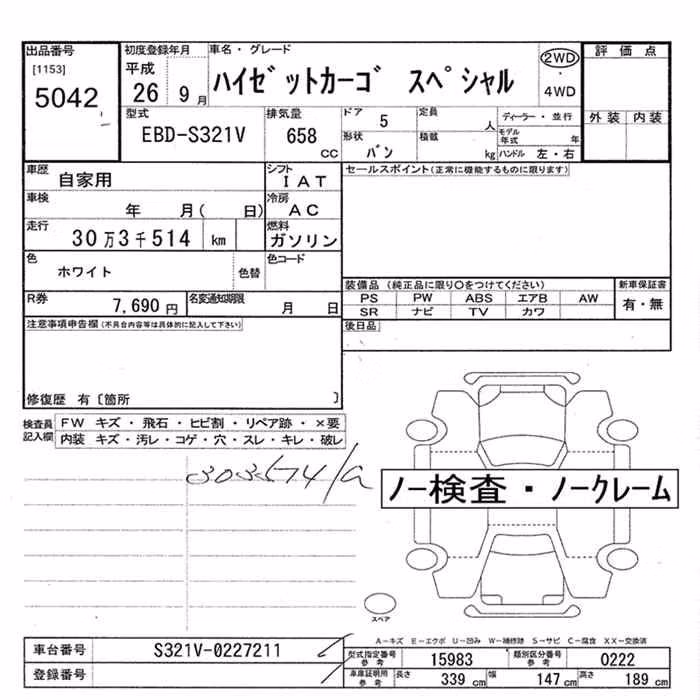 出品番号 初度登録年月 車名・グレード 評価点
[1153] 平成 ハイゼットカーゴ スペシャル 2WD
5042 26 9月 ・ 4WD
型式 排気量 ドア 5 定員 人 ディーラー・並行 外装 内装
EBD-S321V 658 cc 形状 バン 積載 kg モデル年式 年
ハンドル 左・右
車歴 自家用 シフト IAT セールスポイント(正常に機能するものに限ります)
車検 年 月( 日) 冷房 AC
走行 30万3千514 km 燃料 ガソリン
色 ホワイト 色替 色コード
装備品(純正品に限り○をつけてください) 新車保証書
R券 7,690円 名変通知期限 月 日 PS PW ABS エアB AW 有・無
SR ナビ TV カワ
注意事項申告欄(不具合内容等は具体的に記入して下さい) 後日品
修復歴 有〔箇所 〕
検査員記入欄 FW キズ・飛石・ヒビ割・リペア跡・×要
内装 キズ・汚レ・コゲ・穴・スレ・キレ・破レ
303574/a
ノー検査・ノークレーム
スペア
A-キズ E-エクボ U-凹み W-補修跡 S-サビ C-腐食 XX-交換済
車台番号 S321V-0227211 型式指定番号 参考 15983 類別区分番号 参考 0222
登録番号 車庫証明所 参考 長さ 339cm 幅 147cm 高さ 189cm